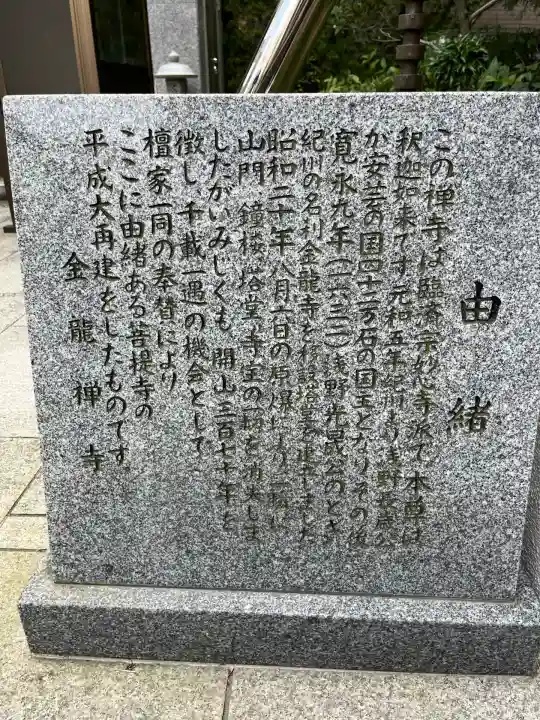 由緒
この禅寺は臨済宗妙心寺派で本尊は
釈迦如来です元和五年紀州より浅野長晟公
が安芸の国四十二万石の国主となりその後
寛永九年(一六三二)浅野光晟公のとき
紀州の名刹金龍寺を移設塔堂を建立しました
昭和二十年八月六日の原爆により一瞬に
山門鐘楼塔堂寺宝の一切を消失しま
したがいみじくも開山三百七十年を
徴し千載一遇の機会として
檀家一同の奉賛により
ここに由緒ある菩提寺の
平成大再建をしたものです
金龍禅寺